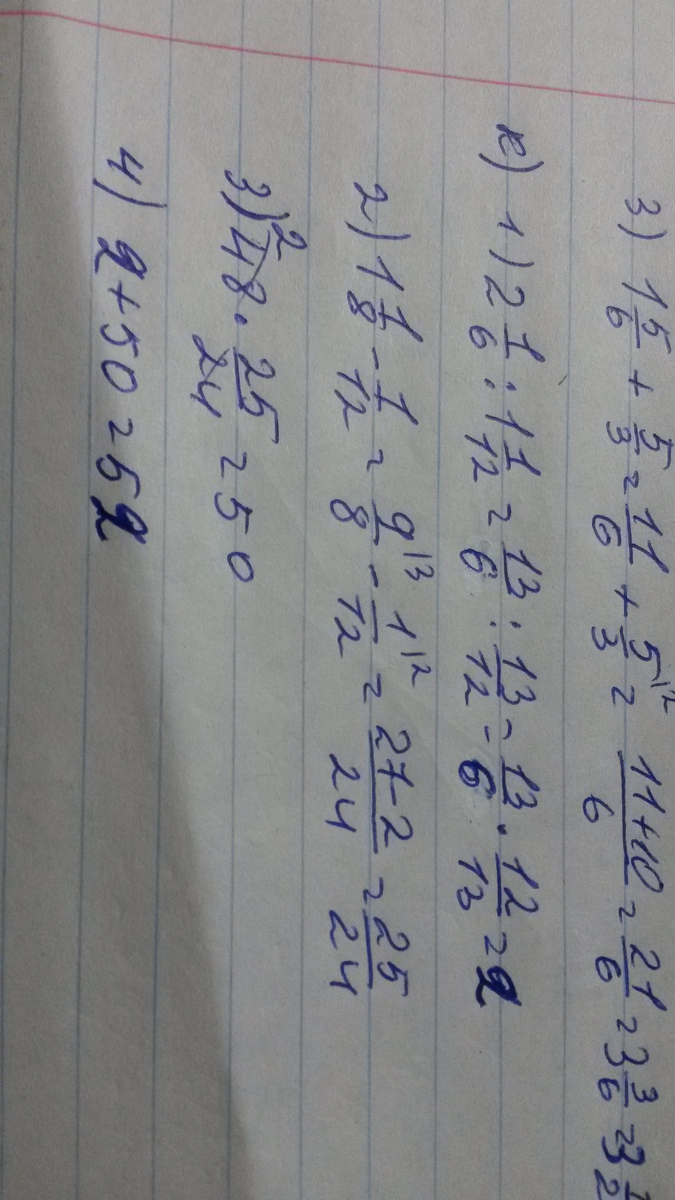 3) 1 5/6 + 5/3 = 11/6 + 5/3 \2 = 11+10/6 = 21/6 = 3 3/6 = 3 1/2
к) 1) 2 1/6 : 1 1/12 = 13/6 : 13/12 = 13/6 · 12/13 = 2
2) 1 1/8 - 1/12 = 9/8 \3 - 1/12 \2 = 27-2/24 = 25/24
3) 48 2 · 25/24 = 50
4) 2+50=52